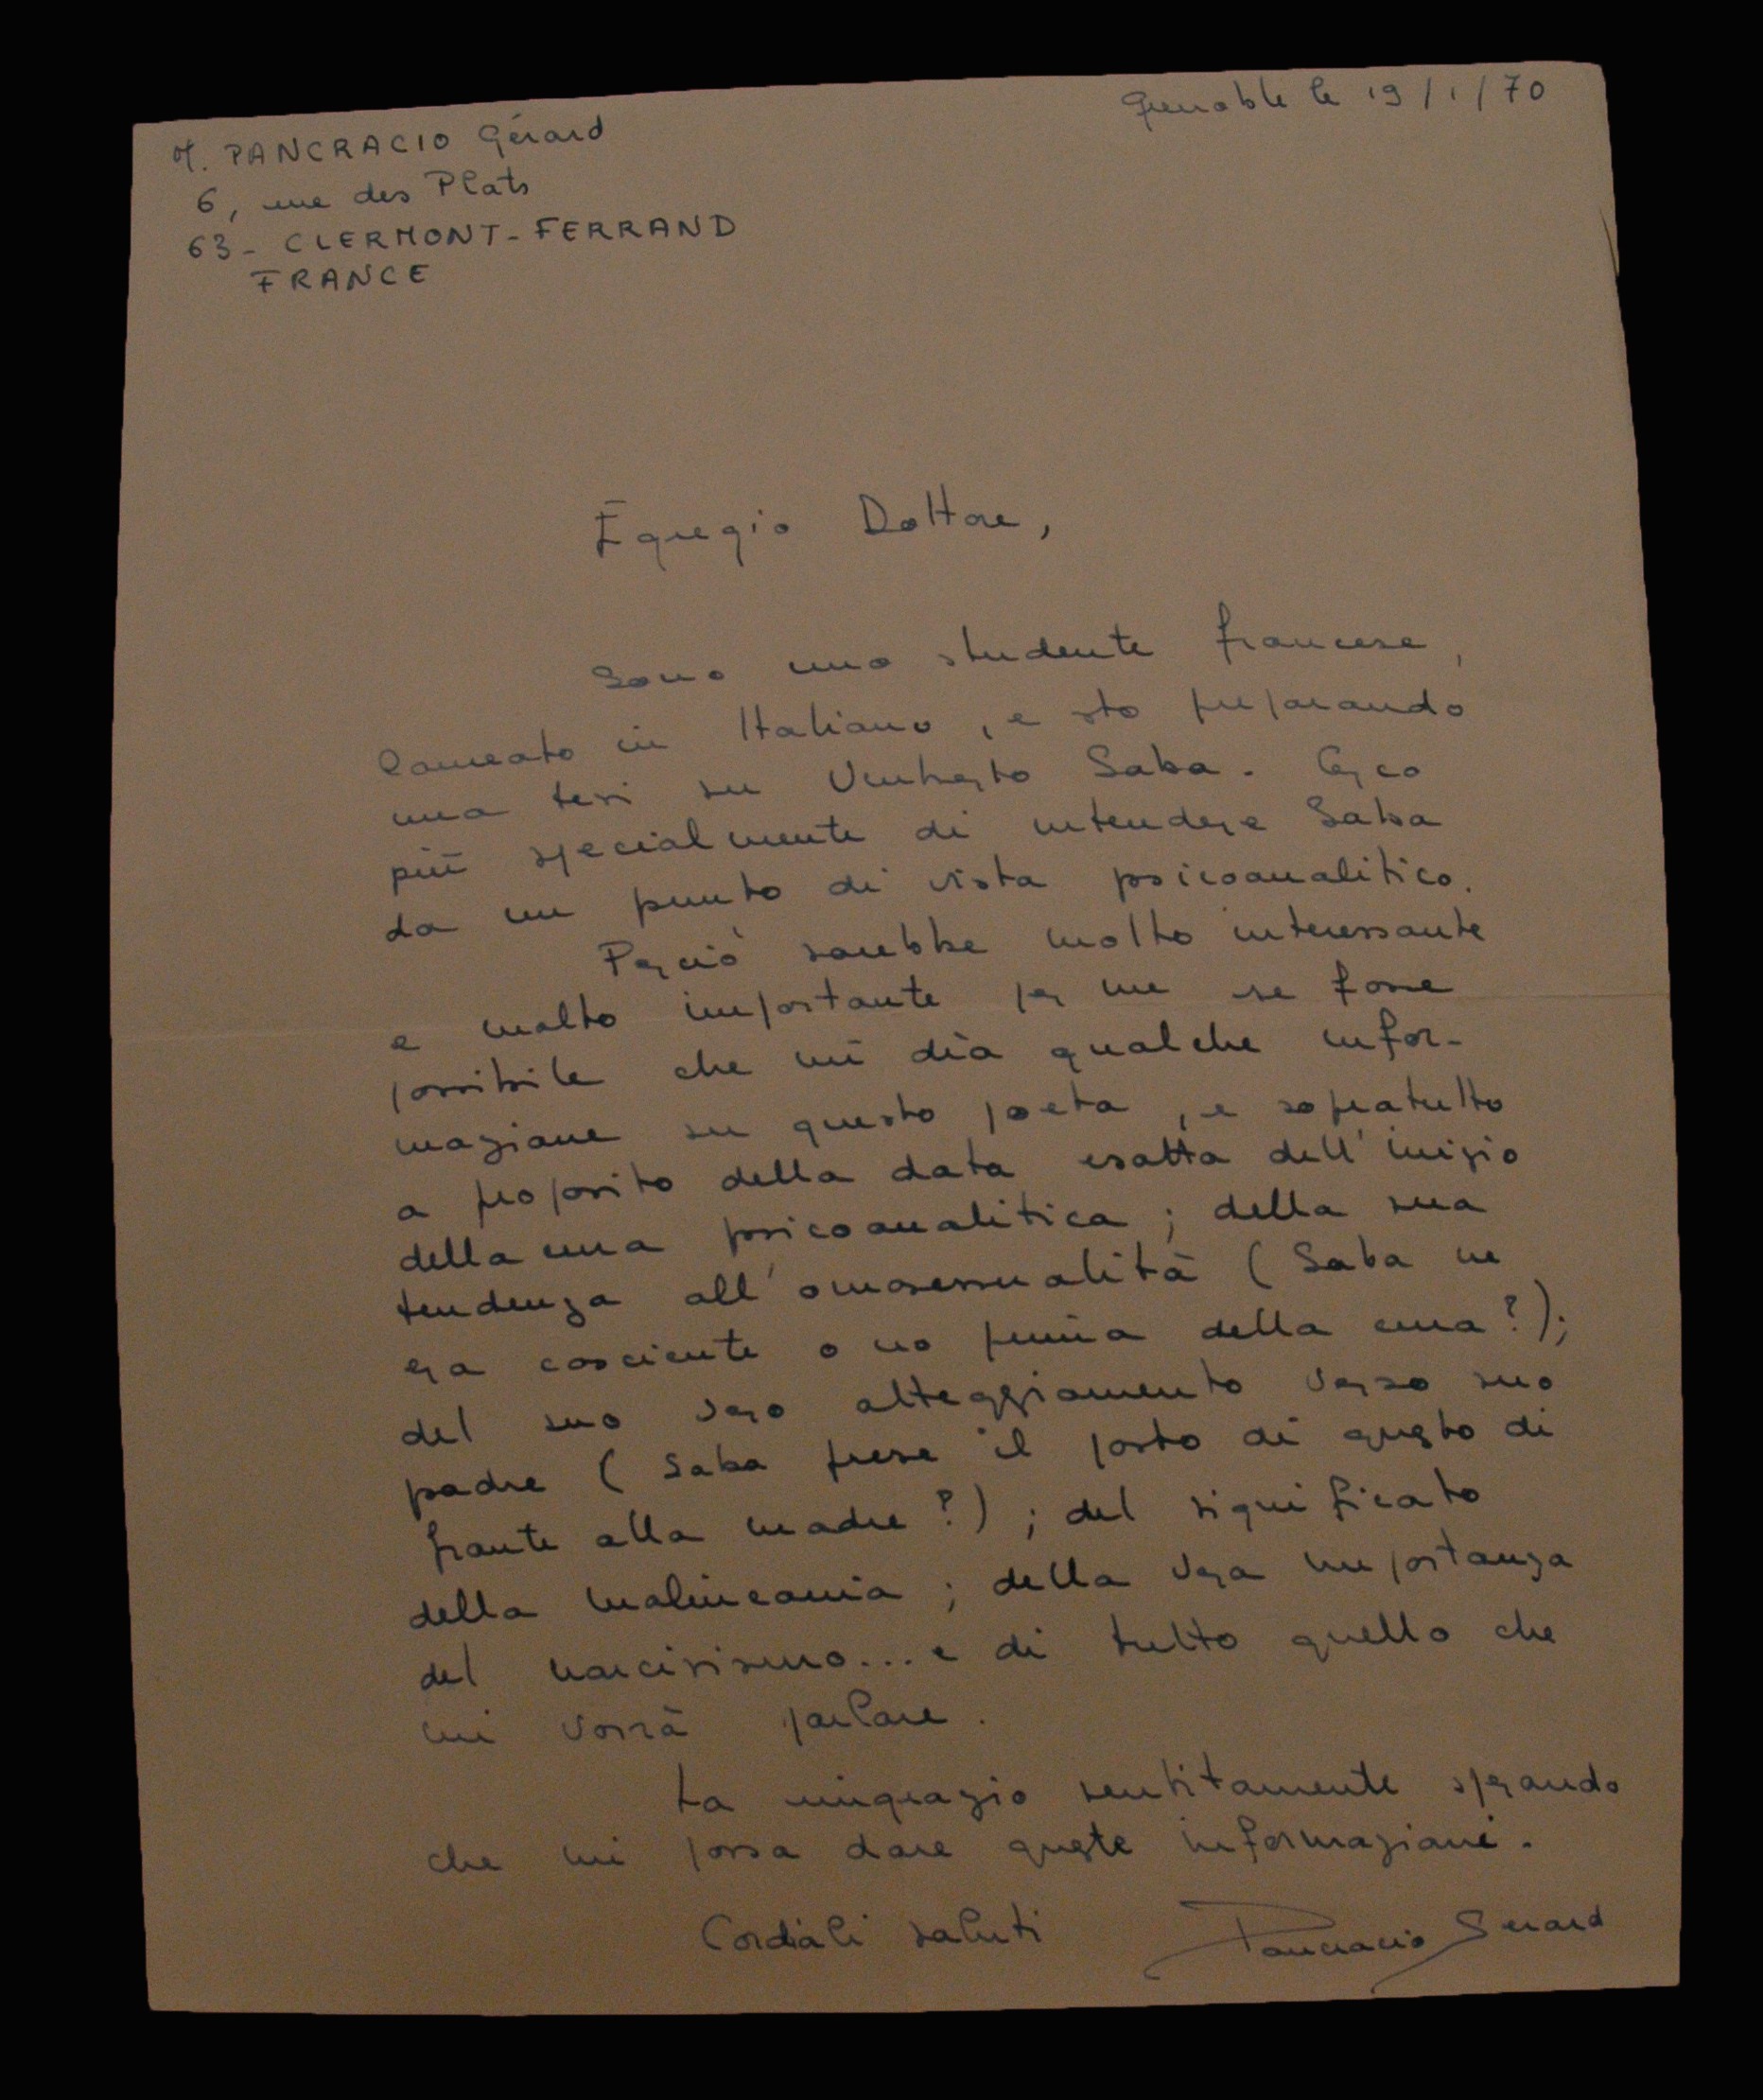 M. PANCRACIO Gérard
6, rue des Plats
63 - CLERMONT-FERRAND
FRANCE
Grenoble le 19/1/70
Egregio Dottore,
Sono uno studente francese,
laureato in Italiano, e sto preparando
una tesi su Umberto Saba. Cerco
più specialmente di intendere Saba
da un punto di vista psicoanalitico.
Perciò sarebbe molto interessante
e molto importante per me se fosse
possibile che mi dia qualche infor-
mazione su questo poeta, e sopratutto
a proposito della data esatta dell'inizio
della cura psicoanalitica ; della sua
tendenza all'omosessualità ( Saba ne
era cosciente o no prima della cura ?);
del suo vero atteggiamento verso suo
padre ( Saba prese il posto di questo di
fronte alla madre ?) ; del significato
della malinconia ; della vera importanza
del narcisismo... e di tutto quello che
mi vorrà parlare .
La ringrazio sentitamente sperando
che mi possa dare queste informazioni.
Cordiali saluti
Pancracio Gérard